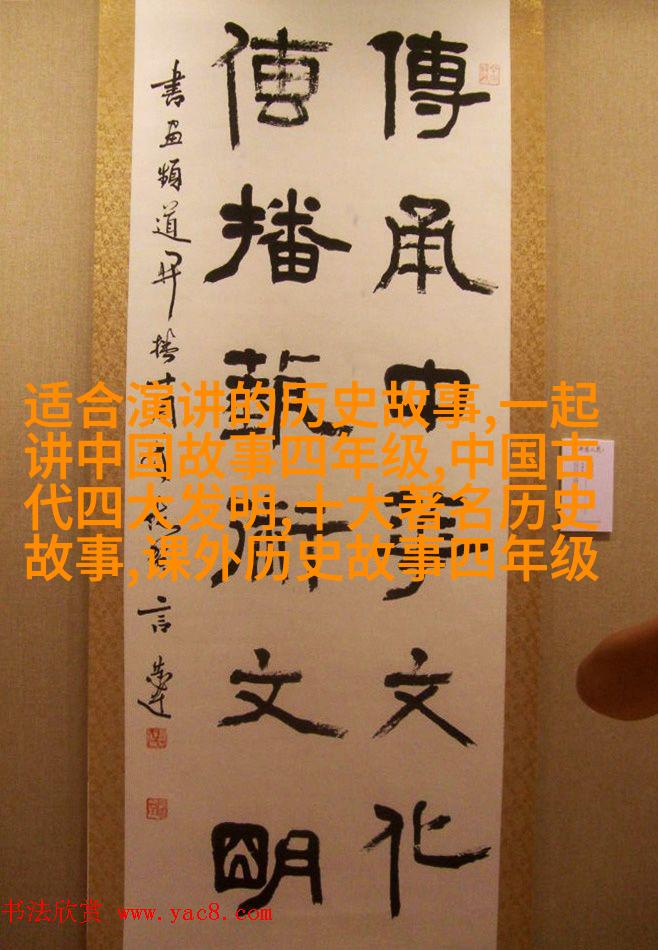 傳承中華文化
傳播藝術文明
書画頻道开播
适合演讲的历史故事,一起
讲中国故事四年级,中国古
代四大发明,十大著名历史
故事,课外历史故事四年级
书法欣赏 www.yac8.com